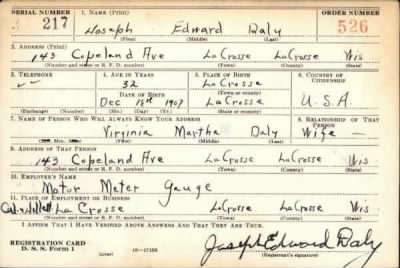 SERIAL NUMBER 1. NAME (Print) ORDER NUMBER
217 Joseph Edward Daly 526
(First) (Middle) (Last)
2. ADDRESS (Print)
143 Copeland Ave LaCrosse LaCrosse Wis
(Number and street or R. F. D. number) (Town) (County) (State)
3. TELEPHONE 4. AGE IN YEARS 5. PLACE OF BIRTH 6. COUNTRY OF CITIZENSHIP
32 LaCrosse
DATE OF BIRTH (Town or county)
Dec 18th 1907 LaCrosse U.S.A.
(Exchange) (Number) (Mo.) (Day) (Yr.) (State or country)
7. NAME OF PERSON WHO WILL ALWAYS KNOW YOUR ADDRESS 8. RELATIONSHIP OF THAT PERSON
Virginia Martha Daly Wife
(First) (Middle) (Last)
9. ADDRESS OF THAT PERSON
143 Copeland Ave LaCrosse LaCrosse Wis
(Number and street or R. F. D. number) (Town) (County) (State)
10. EMPLOYER'S NAME
Motor Meter Gauge
11. PLACE OF EMPLOYMENT OR BUSINESS
La Crosse LaCrosse LaCrosse Wis
(Number and street or R. F. D. number) (Town) (County) (State)
I AFFIRM THAT I HAVE VERIFIED ABOVE ANSWERS AND THAT THEY ARE TRUE.
REGISTRATION CARD
D. S. S. Form 1 (over) 16—17105 Joseph Edward Daly
(Registrant's signature)